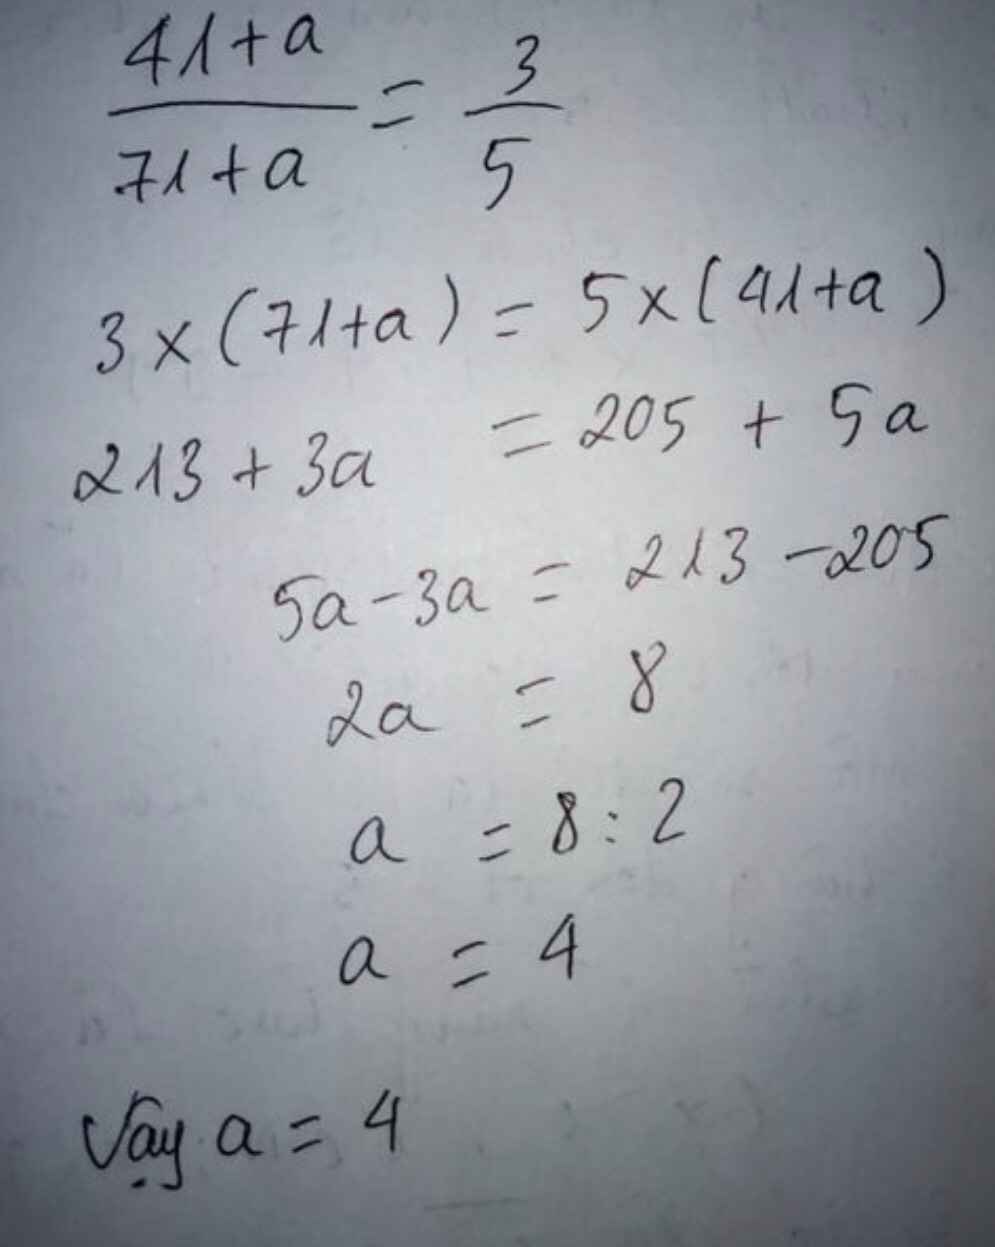 41+a / 71+a = 3 / 5
3 x (71+a) = 5 x (41+a)
213 + 3a = 205 + 5a
5a - 3a = 213 - 205
2a = 8
a = 8 : 2
a = 4
Vậy a = 4